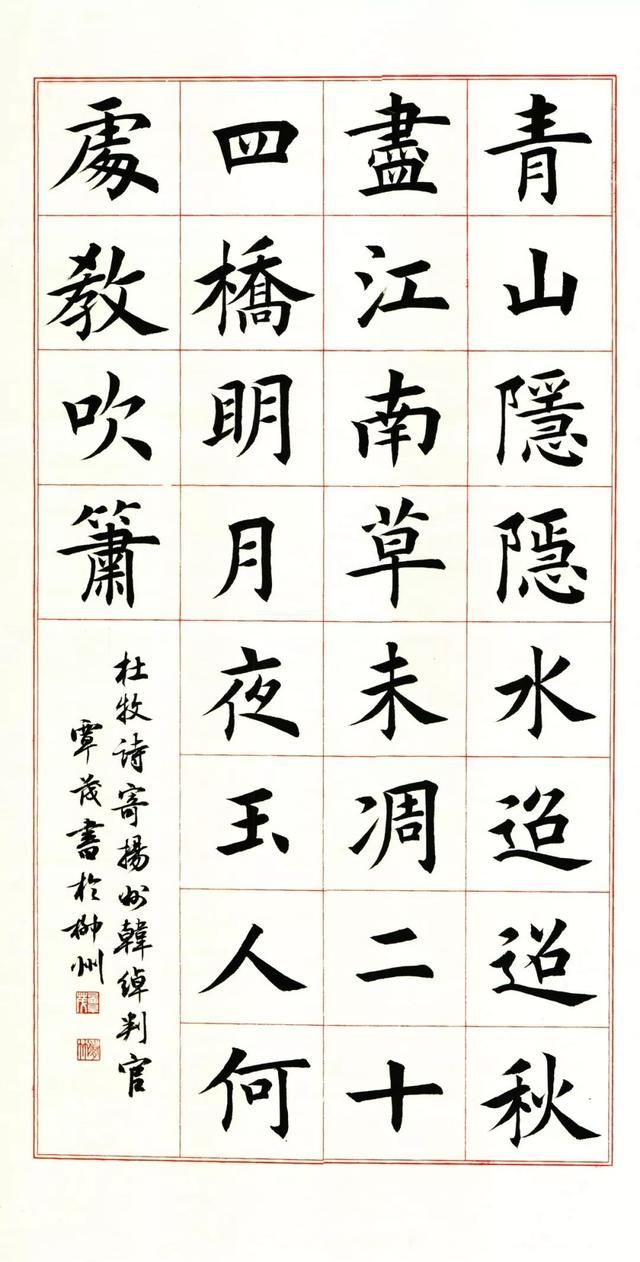 青山隱隠水迢迢秋
盡江南草未凋二十
四橋明月夜玉人何
處教吹簫
杜牧诗寄揚州韓绰判官
覃茂書於柳州